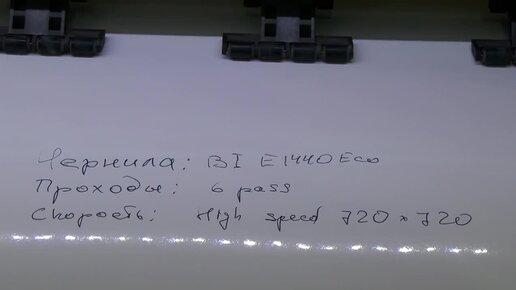 Чернила: BI E1440Eco
Проходы: 6 pass
Скорость: High speed 720 x 720